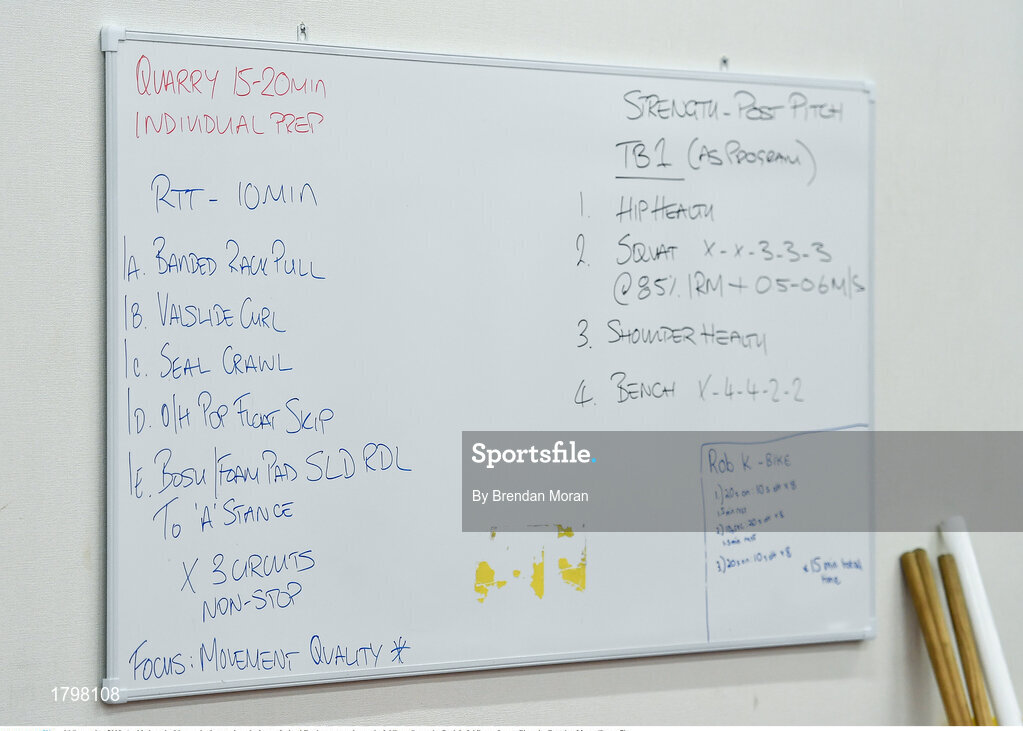 QUARRY 15-20MIN
INDIVIDUAL PREP
RTT - 10MIN
1A. BANDED RACK PULL
1B. VALSLIDE CURL
1C. SEAL CRAWL
1D. O/H POP FLOAT SKIP
1E. BOSU/FOAM PAD SLD RDL
TO 'A' STANCE
X 3 CIRCUITS
NON-STOP
FOCUS: MOVEMENT QUALITY *
STRENGTH - POST PITCH
TB1 (AS PROGRAM)
1. HIP HEALTH
2. SQUAT X-X-3-3-3
@ 85% 1RM + 05-06M/S
3. SHOULDER HEALTH
4. BENCH X-4-4-2-2
Rob K - BIKE
1) 20s on 10s off x 8
2) 20s off x 8
3) 20s on 10s off x 8
15 min total
time
Sportsfile.
By Brendan Moran
1798108